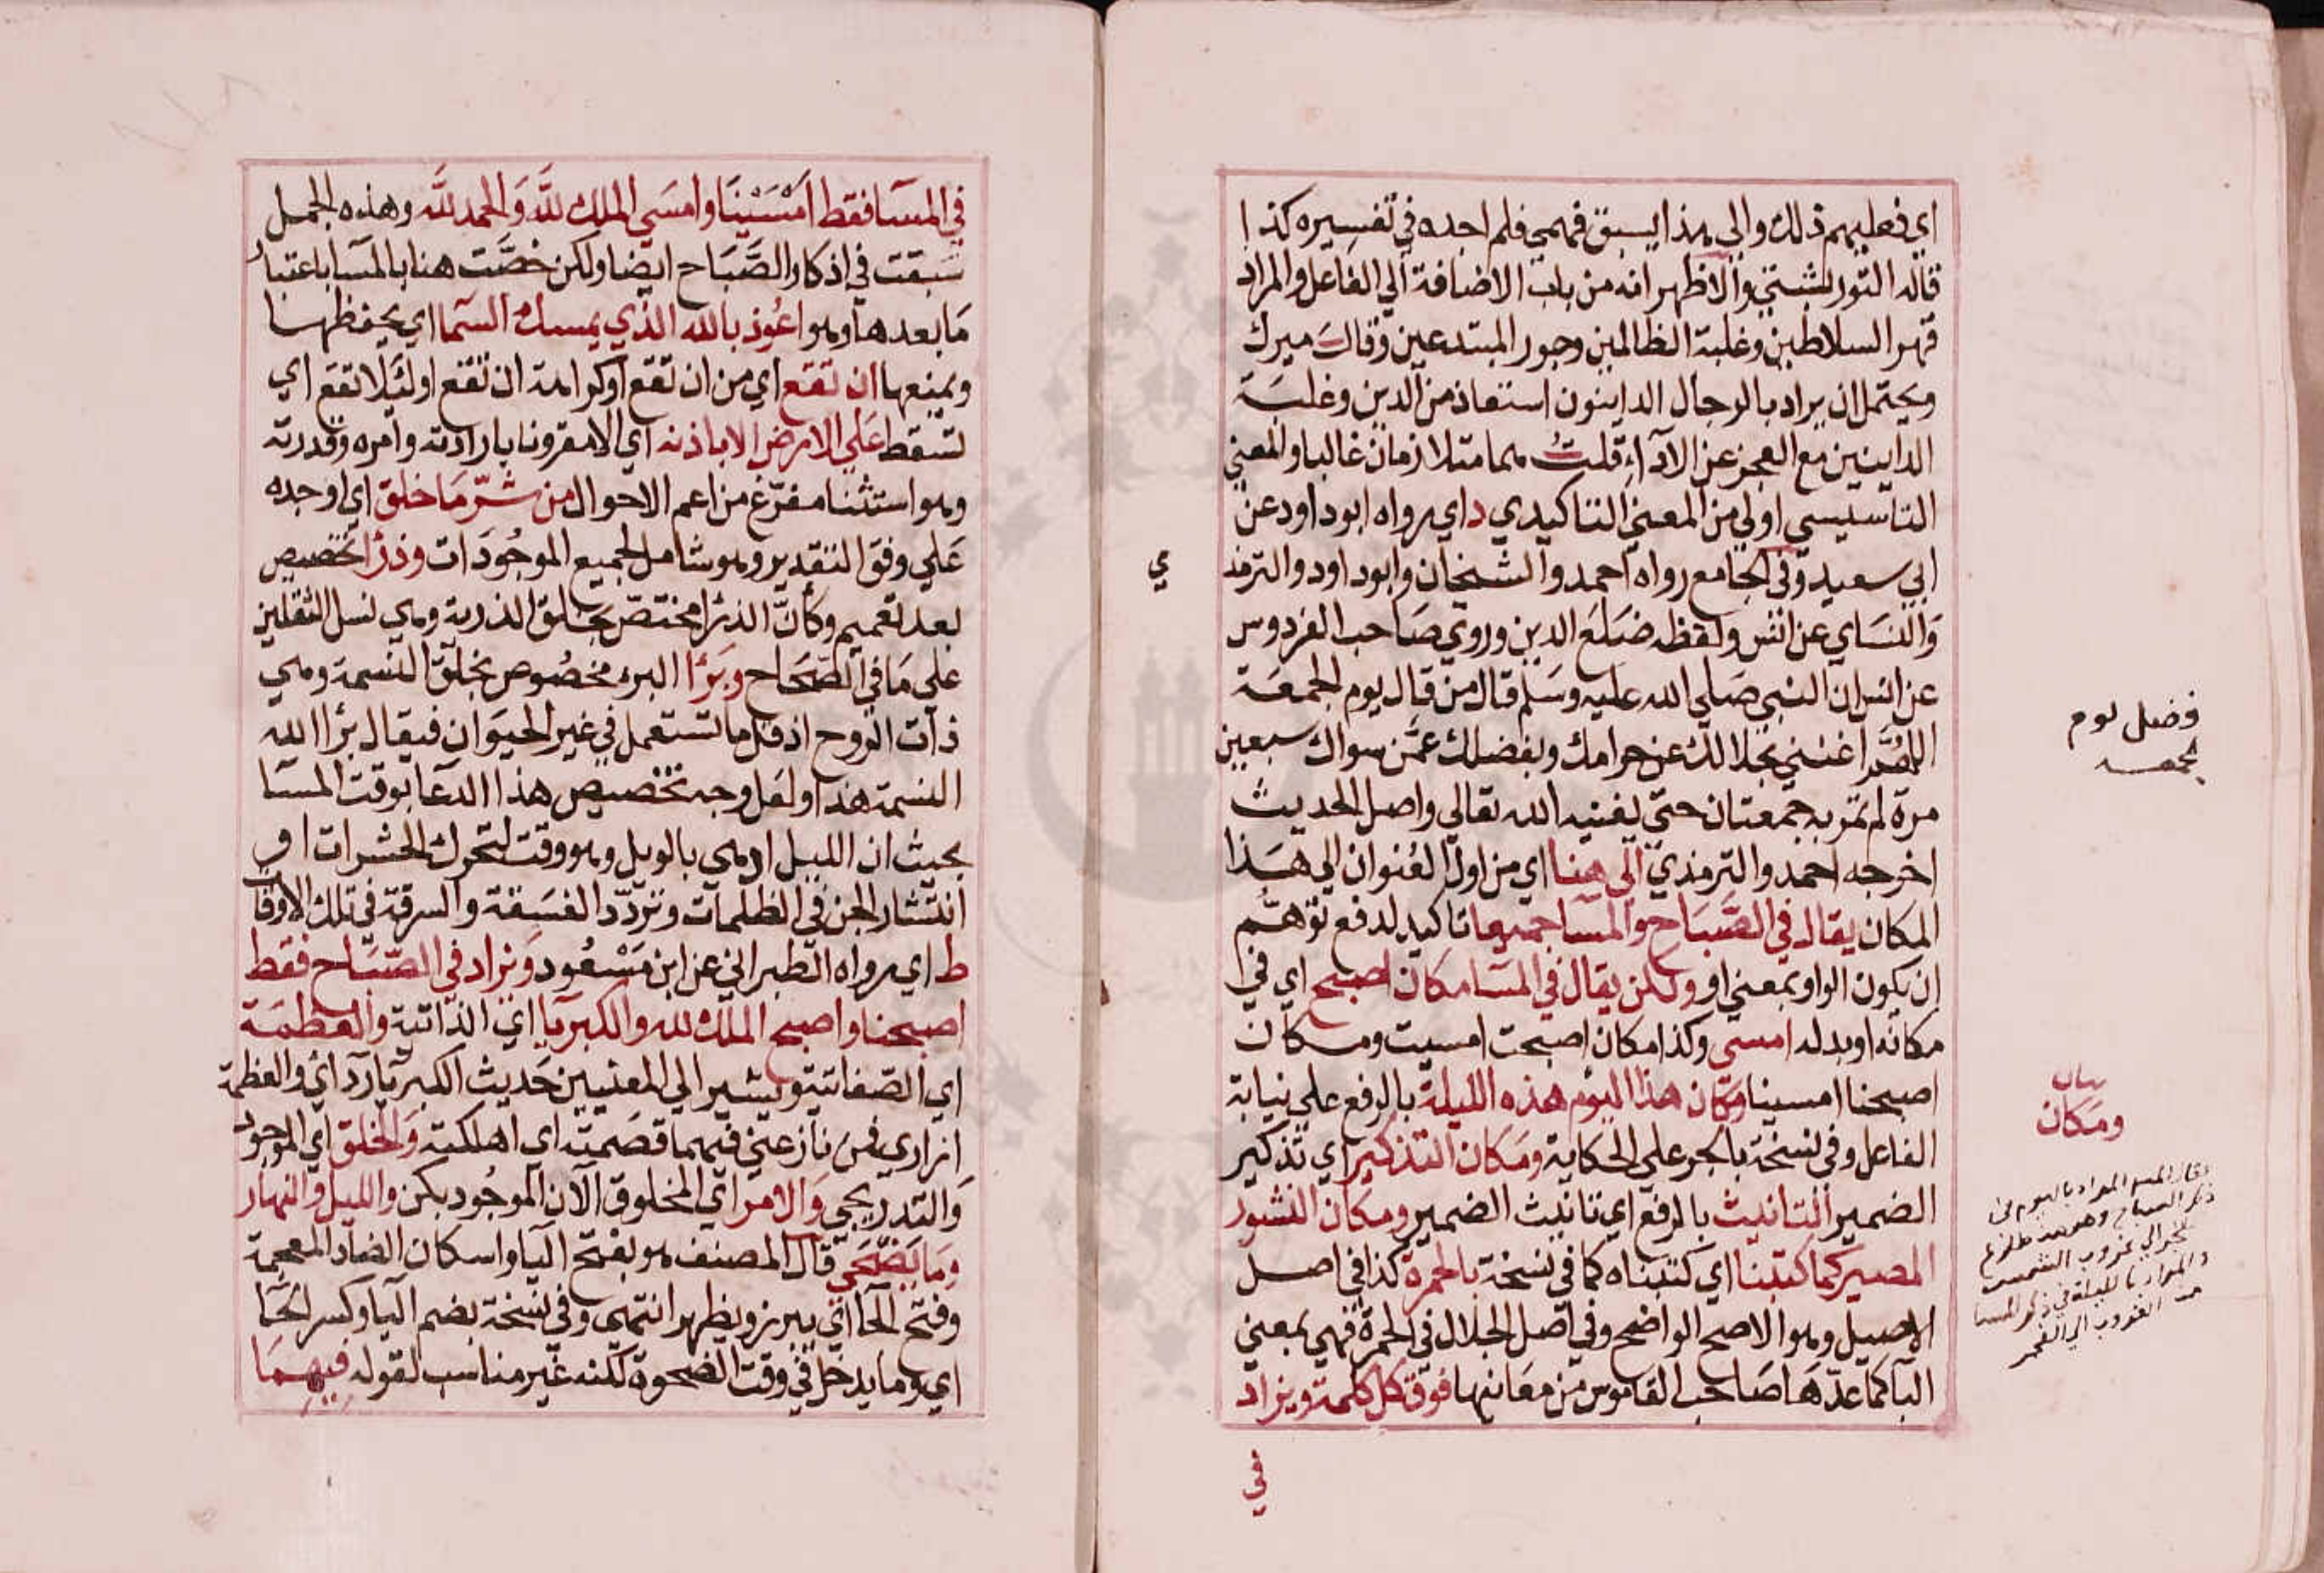 اي فعليهم ذلك والي هذا يسبق فهمي فلم اجده في تفسيره كذا
قاله التوربشتي والاظهر انه من باب الاضافة الي الفاعل والمراد
قهر السلاطين وغلبة الظالمين وجور المبتدعين وقال ميرك
ويحتمل ان يراد بالرجال الداينون استعاذ من الدين وغلبة
الداينين مع العجز عن الادآء قلت هما متلازمان غالبا والمعني
التاسيسي اولي من المعني التاكيدي د اي رواه ابو داود عن
ابي سعيد وفي الجامع رواه احمد والشيخان وابو داود والترمذ
ي
والنساي عن انس ولفظه ضلع الدين وروي صاحب الفردوس
عن انس ان النبي صلي الله عليه وسلم قال من قال يوم الجمعة
اللهم اغنني بحلالك عن حرامك وبفضلك عمن سواك سبعين
مرة لم تمر به جمعتان حتي يغنيه الله تعالي واصل الحديث
اخرجه احمد والترمذي الي هنا اي من اول العنوان الي هذا
المكان يقال في الصباح والمسا جميعا تاكيد لدفع توهم
ان يكون الواو بمعني او ولكن يقال في المسا مكان اصبح اي في
مكانه او بدله امسي وكذا مكان اصبحت امسيت ومكان
اصبحنا امسينا ومكان هذا اليوم هذه الليلة بالرفع علي نيابة
الفاعل وفي نسخة بالجر علي الحكاية ومكان التذكير اي تذكير
الضمير التانيث بالرفع اي تانيث الضمير ومكان النشور
المصير كما كتبنا اي كتبناه كما في نسخة بالحمرة كذا في اصل
الاصيل وهو الاصح الواضح وفي اصل الجلال في الحمرة فهي بمعني
البا كما عدها صاحب القاموس من معانيها فوق كل كلمة ويزاد
في
فضل يوم
الجمعه
بيان
ومكان
المراد باليوم في
ذكر الصباح وهو من طلوع
الفجر الي غروب الشمس
والمراد بالليلة في ذكر المسا
من الغروب الي الفجر
في المسا فقط امسينا وامسي الملك لله والحمد لله وهذه الجمل
سبقت في اذكار الصباح ايضا ولكن خصت هنا بالمسا باعتبار
ما بعدها وهو اعوذ بالله الذي يمسك السما اي يحفظها
ويمنعها ان تقع اي من ان تقع او كراهة ان تقع او لئلا تقع اي
تسقط علي الارض الا باذنه اي الا مقرونا بارادته وامره وقدرته
وهو استثنا مفرغ من اعم الاحوال من شر ما خلق اي اوجده
علي وفق التقدير وهو شامل لجميع الموجودات وذرا تخصيص
بعد تعميم وكأن الذرا مختص بخلق الذرية وهي نسل الثقلين
علي ما في الصحاح وبرا البرء مخصوص بخلق النسمة وهي
ذات الروح اذ قل ما تستعمل في غير الحيوان فيقال برا الله
النسمة هذا ولعل وجه تخصيص هذا الدعا بوقت المسا
بحيث ان الليل ادهي بالويل وهو وقت لتحرك الحشرات او
انتشار الجن في الظلمات وتردد الفسقة والسرقة في تلك الاوقا
ط اي رواه الطبراني عن ابن مسعود ويزاد في الصباح فقط
اصبحنا واصبح الملك لله والكبريا اي الذاتية والعظمة
اي الصفاتية ويشير الي المعنيين حديث الكبريا ردائي والعظمة
ازاري فمن نازعني فيهما قصمته اي اهلكته والخلق اي الموجود
والتدريجي والامر اي المخلوق الآن الموجود بكن والليل والنهار
وما يضحي قال المصنف هو بفتح اليا واسكان الضاد المعجمة
وفتح الحا اي يبرز ويظهر انتهي وفي نسخة بضم اليا وكسر الحا
اي وما يدخل في وقت الضحوة لكنه غير مناسب لقوله فيهما